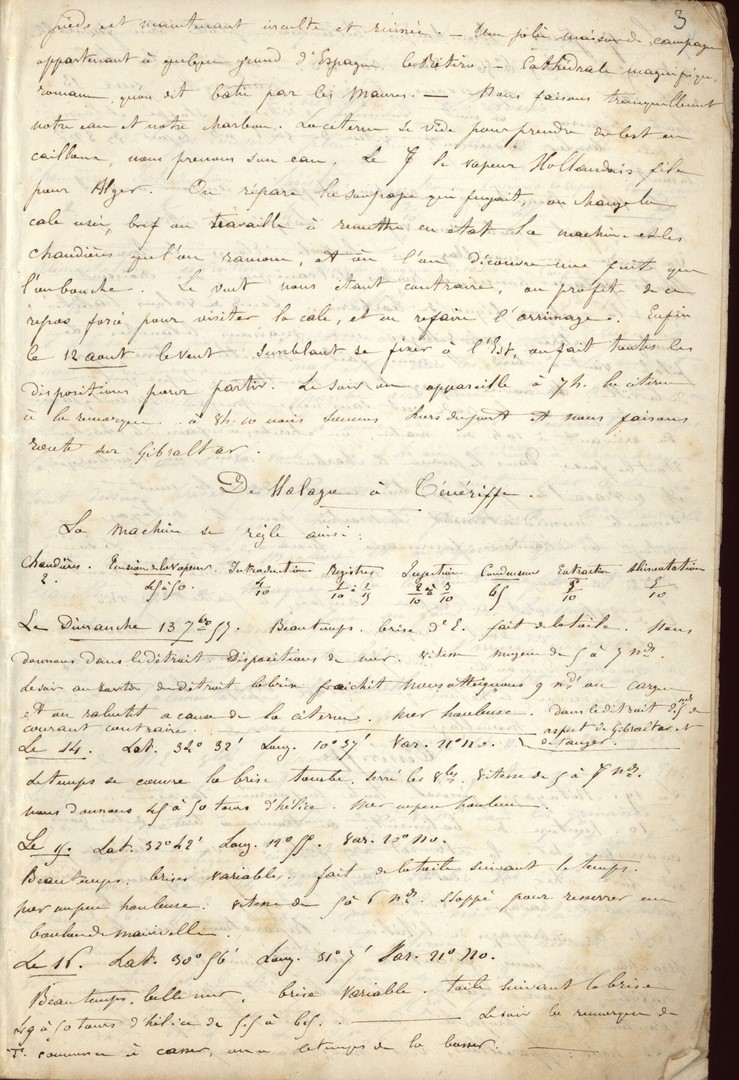 3
pieds est maintenant inculte et ruinée. — Une jolie maison de campagne
appartenant à quelque grand d'Espagne, le Retiro — Cathédrale magnifique,
romane, qu'on dit batie par les Maures. — Nous faisons tranquillement
notre eau et notre charbon. La citerne se vide pour prendre du lest en
cailloux, nous prenons son eau. Le 7 le vapeur Hollandais file
pour Alger. On répare la soupape qui fuyait, on change la
cale usée, bref on travaille à remettre en état la machine et les
chaudières que l'on ramone, et où l'on découvre une fuite que
l'on bouche. Le vent nous étant contraire, on profite de ce
repos forcé pour visiter la cale, et en refaire l'arrimage. Enfin
le 12 aout le vent semblant se fixer à l'Est, on fait toutes les
dispositions pour partir. Le soir on appareille à 7h. la citerne
à la remorque. à 8h.10 nous sommes hors du port et nous faisons
route sur Gibraltar.
De Malaga à Ténériffe.
La machine se règle ainsi:
Chaudières. Tension de la vapeur. Introduction Registres Injection Condenseur Extraction Alimentation
2. 45 à 50. 4/10 65 5/10
Le Dimanche 13 57. Beau temps. brise d'E. fait de la toile. Nous
donnons dans le détroit. Dispositions de mer. vitesse moyenne de 5 à 7 nds.
Le soir au sortir du détroit la brise fraichit nous atteignons 9 nds. on cargue
et on ralentit a cause de la citerne. Mer houleuse. dans le détroit
courant contraire. aspect de Gibraltar et
de Tanger.
Le 14. Lat. 32° 32' Long. 10° 37' Var. 21° no.
Le temps se couvre la brise tombe. serré les Vles. Vitesse de 5 à 7 nds.
nous donnons 45 à 50 tours d'hélice. Mer un peu houleuse.
Le 15. Lat. 32° 42' Long. 12° 55. Var. 20° no.
Beau temps. brises variables. fait de la toile suivant le temps.
mer un peu houleuse. vitesse de 5 à 6 nds. Stoppé pour resserrer un
boulon de manivelle.
Le 16. Lat. 30° 56' Long. 31° 7' Var. 21° no.
Beau temps, belle mer, brise variable. toile suivant la brise
49 à 50 tours d'hélice de 5.5 à 6.5. — Le soir la remorque de
commence à casser, on a le temps de la bosser. —